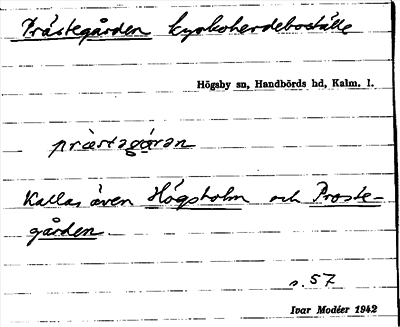 Prästegården kyrkoherdeboställe
Högsby sn, Handbörds hd, Kalm. l.
præstagóran
Kallas även Högsholm och Proste-
gården
s. 57
Ivar Modéer 1942